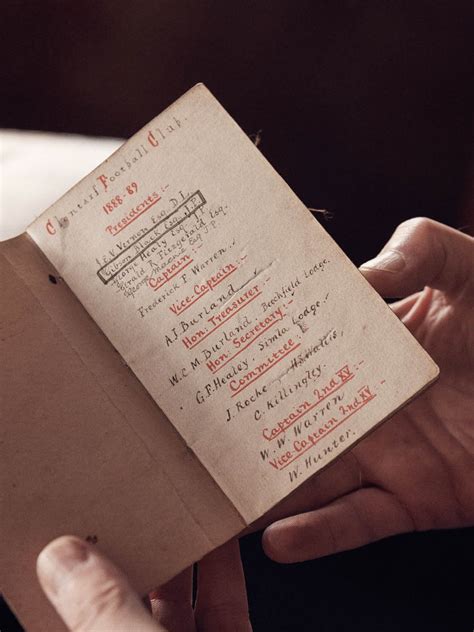 Clontarf Football Club.
1888-89
Presidents :-
J.E.V. Vernon Esq. D.L.
Gibson Black Esq. J.P.
George Healy Esq. J.P.
Gerald R. Fitzgerald Esq.
Esq J.P.
Captain :-
Frederick F. Warren.
Vice-Captain :-
A.J. Burland.
Hon: Treasurer :-
W.C.M. Burland. Beechfield Lodge.
Hon: Secretary :-
G.F. Healey. Simla Lodge.
Committee :-
J. Roche H. S. Wallis.
C. Killingley.
Captain 2nd XV :-
W. W. Warren
Vice Captain 2nd XV :-
W. Hunter.